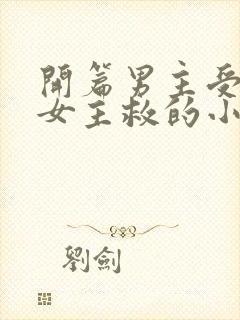 開篇男主受
女主救的小
劉劍